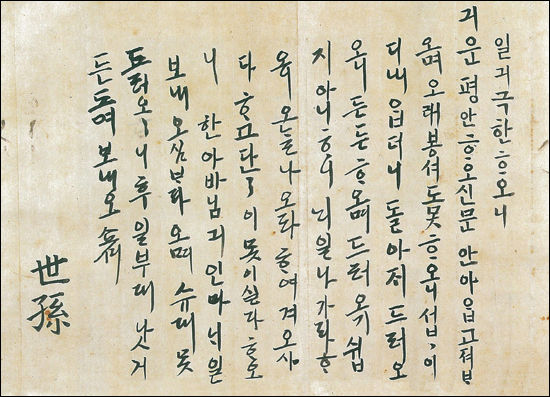 일긔극한ᄒᆞ오니
긔운평안ᄒᆞ오신문안아ᄋᆞᆸ고져ᄇᆞ
오며오래봉셔도못ᄒᆞ오니섭〻이
디내ᄋᆞᆸ더니돌아저드러오
오니든든ᄒᆞ오며드러오기쉽
지아니ᄒᆞ니ᄂᆡ일나가라ᄒᆞ
오ᄂᆞᆯ나오라ᄒᆞ여겨오시
다ᄒᆞ고단〻이못이실다ᄒᆞ오
니한아바님긔인마ᄂᆡ일
보내오심ᄇᆞ라오며슈대못
드러오〻니후일부대낫거
든ᄃᆞ려보내오쇼셔
世孫